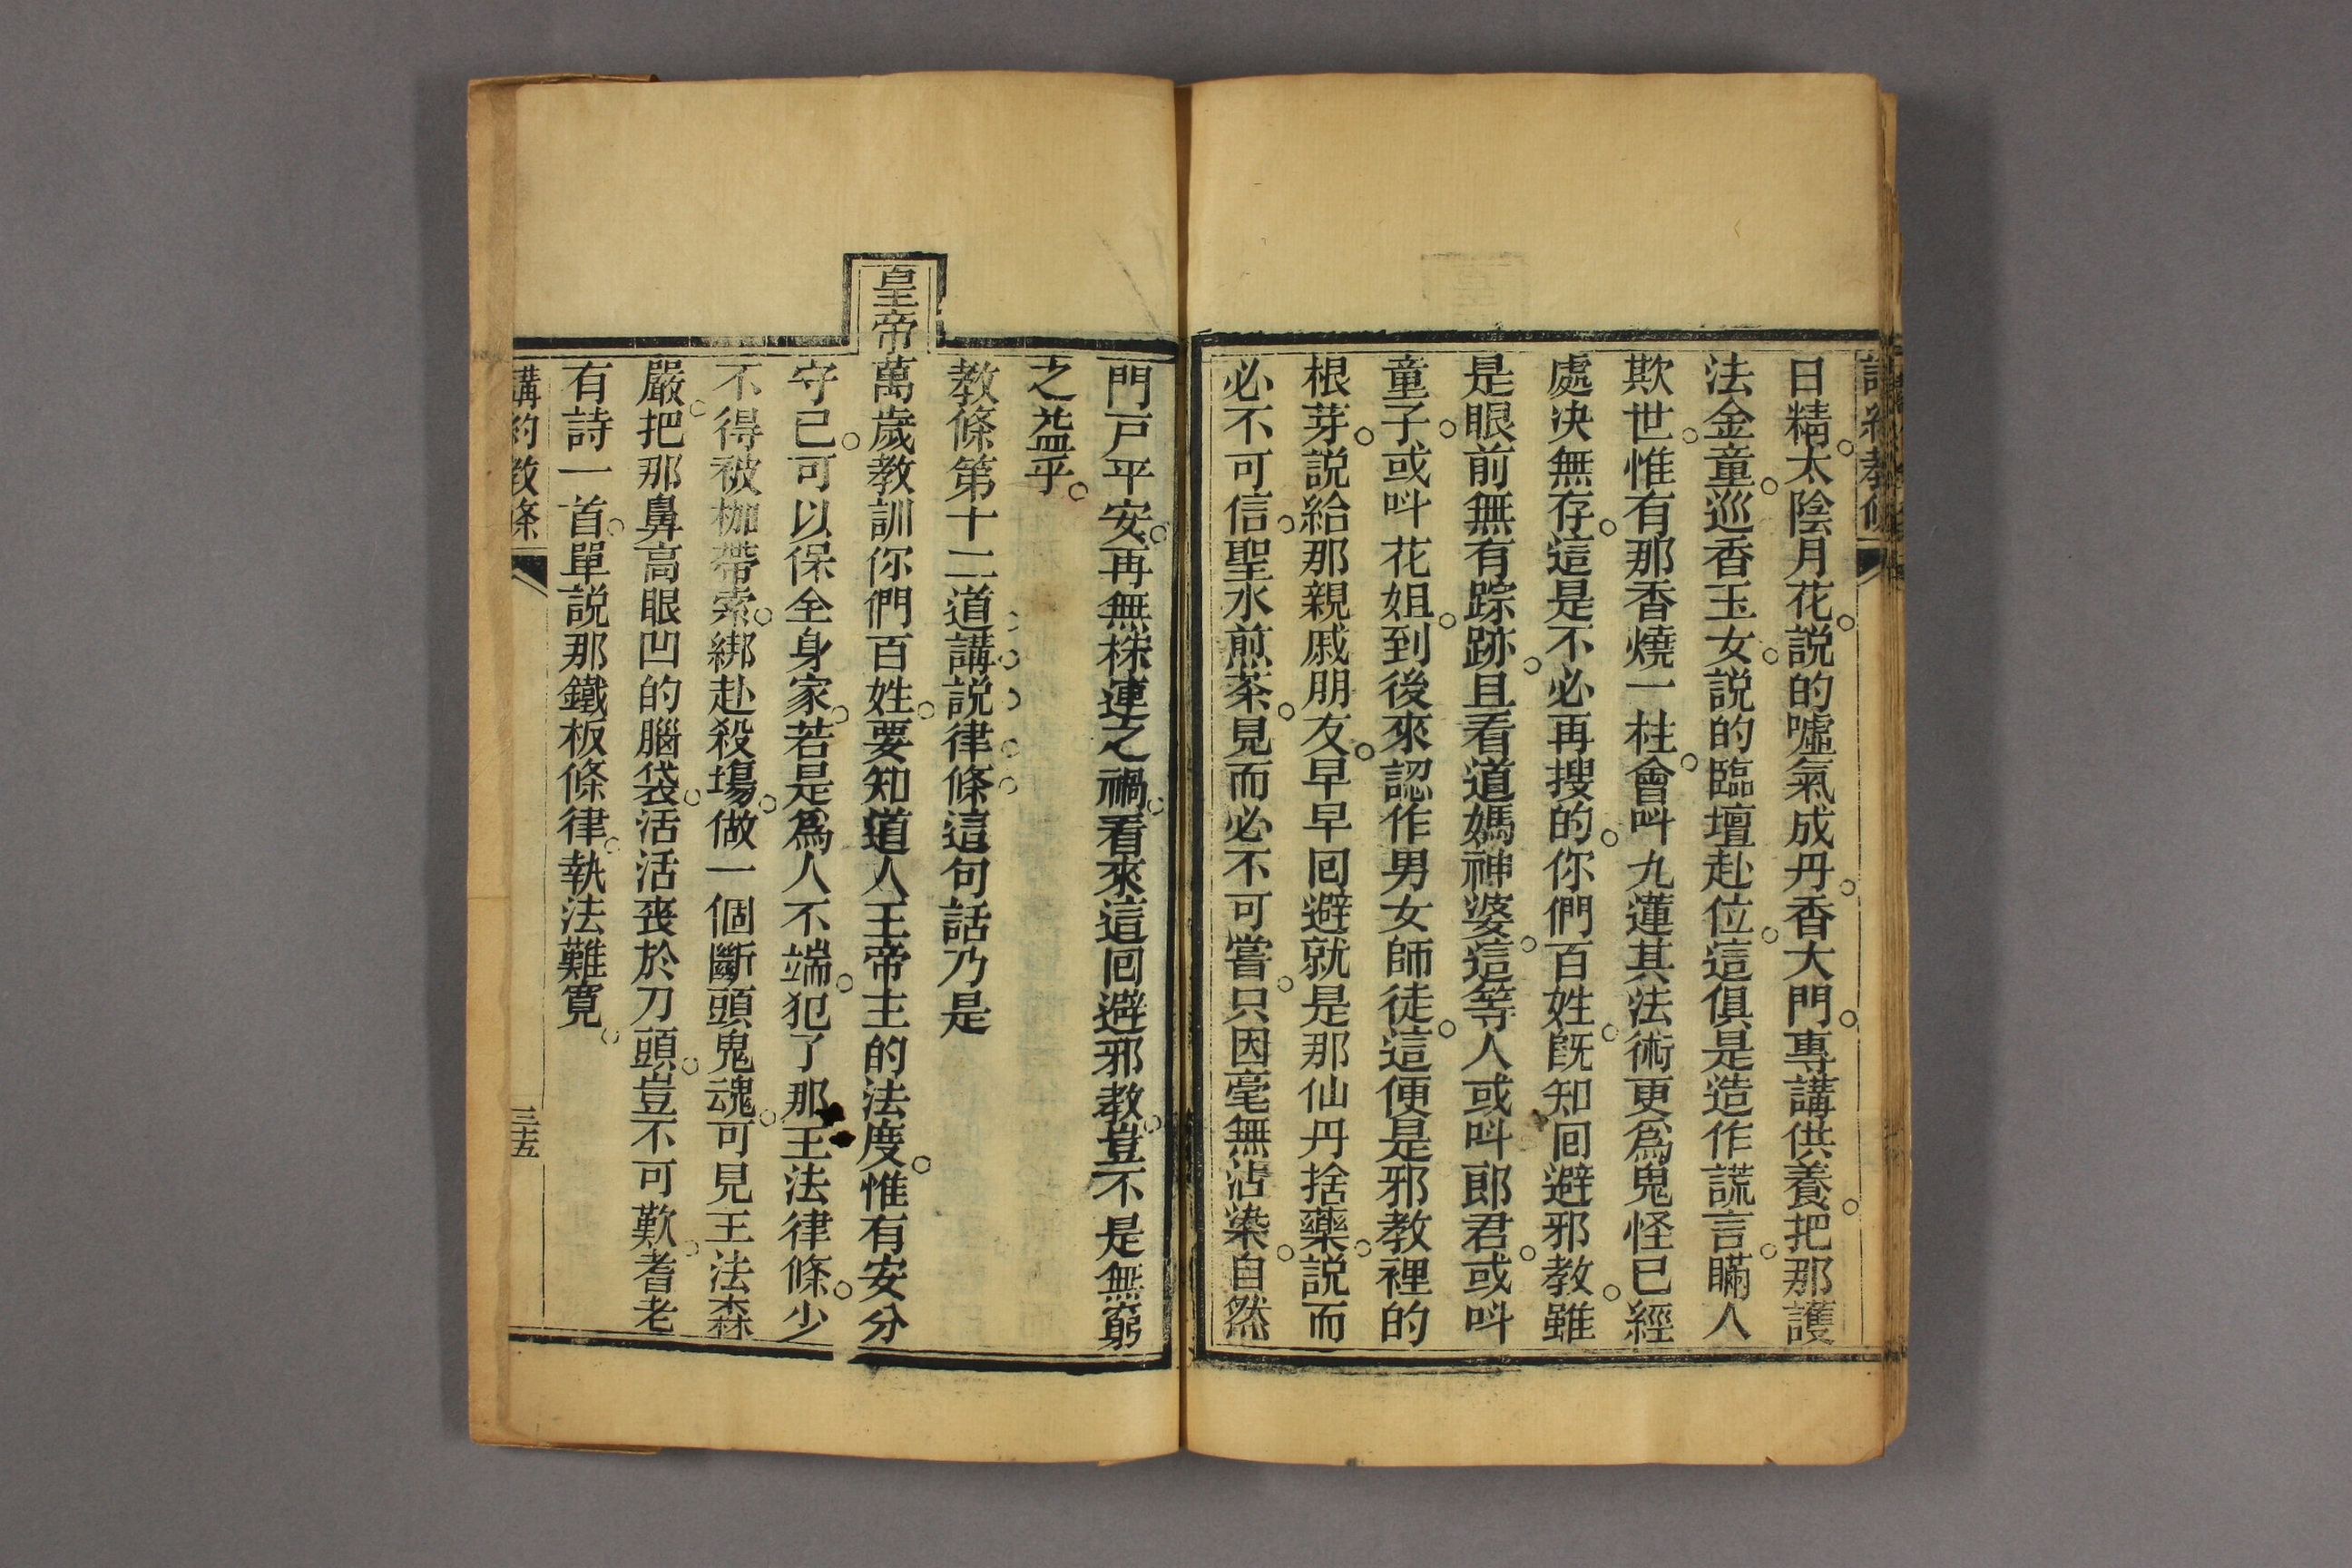 講約教條
日精。太陰月花。説的噓氣成丹。香大門。專講供養。把那護
法金童。巡香玉女。説的臨壇赴位。這俱是造作謊言。瞞人
欺世。惟有那香燒一柱。會呌九蓮其法術更爲鬼怪已經
處決無存。這是不必再搜的。你們百姓。既知囘避邪教。雖
是眼前無有踪跡。且看道媽神婆。這等人或呌郎君。或呌
童子。或呌花姐。到後來認作男女師徒。這便是邪教裡的
根芽。説給那親戚朋友。早早囘避就是那仙丹捨藥。説而
必不可信。聖水煎茶。見而必不可嘗。只因毫無沾染。自然
門戸平安。再無株連之禍。看來這囘避邪教。豈不是無窮
之益乎。
教條第十二道講説律條這句話乃是
皇帝萬歲教訓你們百姓。要知道人王帝主的法度。惟有安分
守己。可以保全身家。若是爲人不端。犯了那王法律條。少
不得被枷帶索。綁赴殺塲。做一個斷頭鬼魂。可見王法森
嚴。把那鼻高眼凹的腦袋。活活喪於刀頭。豈不可歎。耆老
有詩一首。單説那鐵板條律。執法難寛。
講約教條
三十五